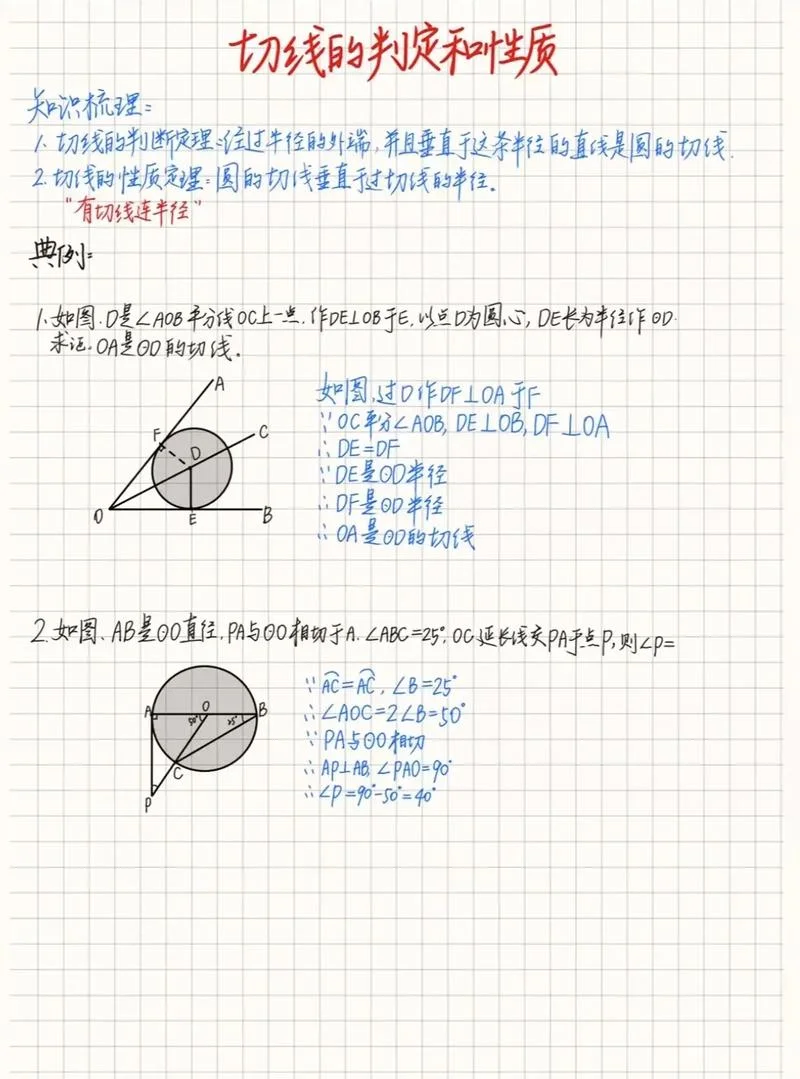 切线的判定和性质
知识梳理：
1. 切线的判断定理：经过半径的外端，并且垂直于这条半径的直线是圆的切线.
2. 切线的性质定理：圆的切线垂直于过切线的半径.
"有切线连半径"
典例：
1. 如图，D是∠AOB平分线OC上一点，作DE⊥OB于E，以点D为圆心，DE长为半径作⊙D.
求证，OA是⊙D的切线.
A
C
F
D
O
E
B
如图，过D作DF⊥OA于F
∵OC平分∠AOB, DE⊥OB, DF⊥OA
∴DE=DF
∵DE是⊙D半径
∴DF是⊙D半径
∴OA是⊙D的切线
2. 如图、AB是⊙O直径，PA与⊙O相切于A. ∠ABC=25°, OC延长线交PA于点P, 则∠P=
A
O
B
50°
25°
C
P
∵AC=AC, ∠B=25°
∴∠AOC=2∠B=50°
∵PA与⊙O相切
∴AP⊥AB, ∠PAO=90°
∴∠P=90°-50°=40°